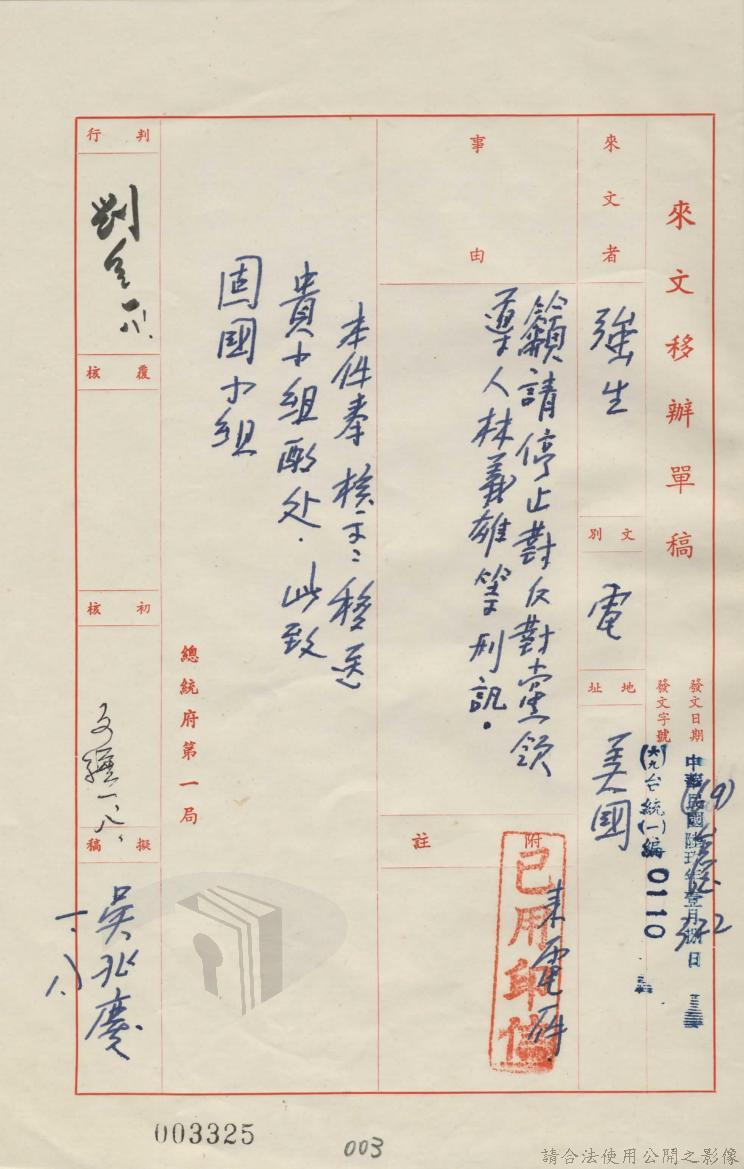 來文移辦單稿
發文日期
中華民國陸玖年壹月捌日
發文字號
(六九)台統(一)編0110
(19)
372
來文者
強生
文別
電
地址
美國
事由
籲請停止對反對黨領
導人林義雄等刑訊。
附註
來電一件
已用印信
本件奉核示:移送
貴小組酌處.此致
固國小組
總統府第一局
判行
劉
一、八、
覆核
初核
一、八、
擬稿
吳兆慶
一、八
003325
003
請合法使用公開之影像